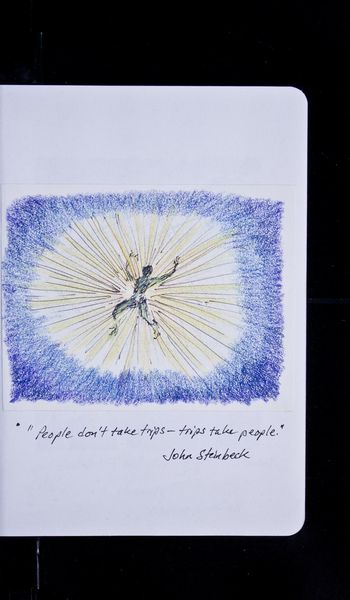 " "People don't take trips — trips take people."
John Steinbeck